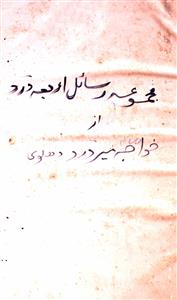 مجموعہ رسائل اربعہ درد
از
خواجہ میر درد دہلوی